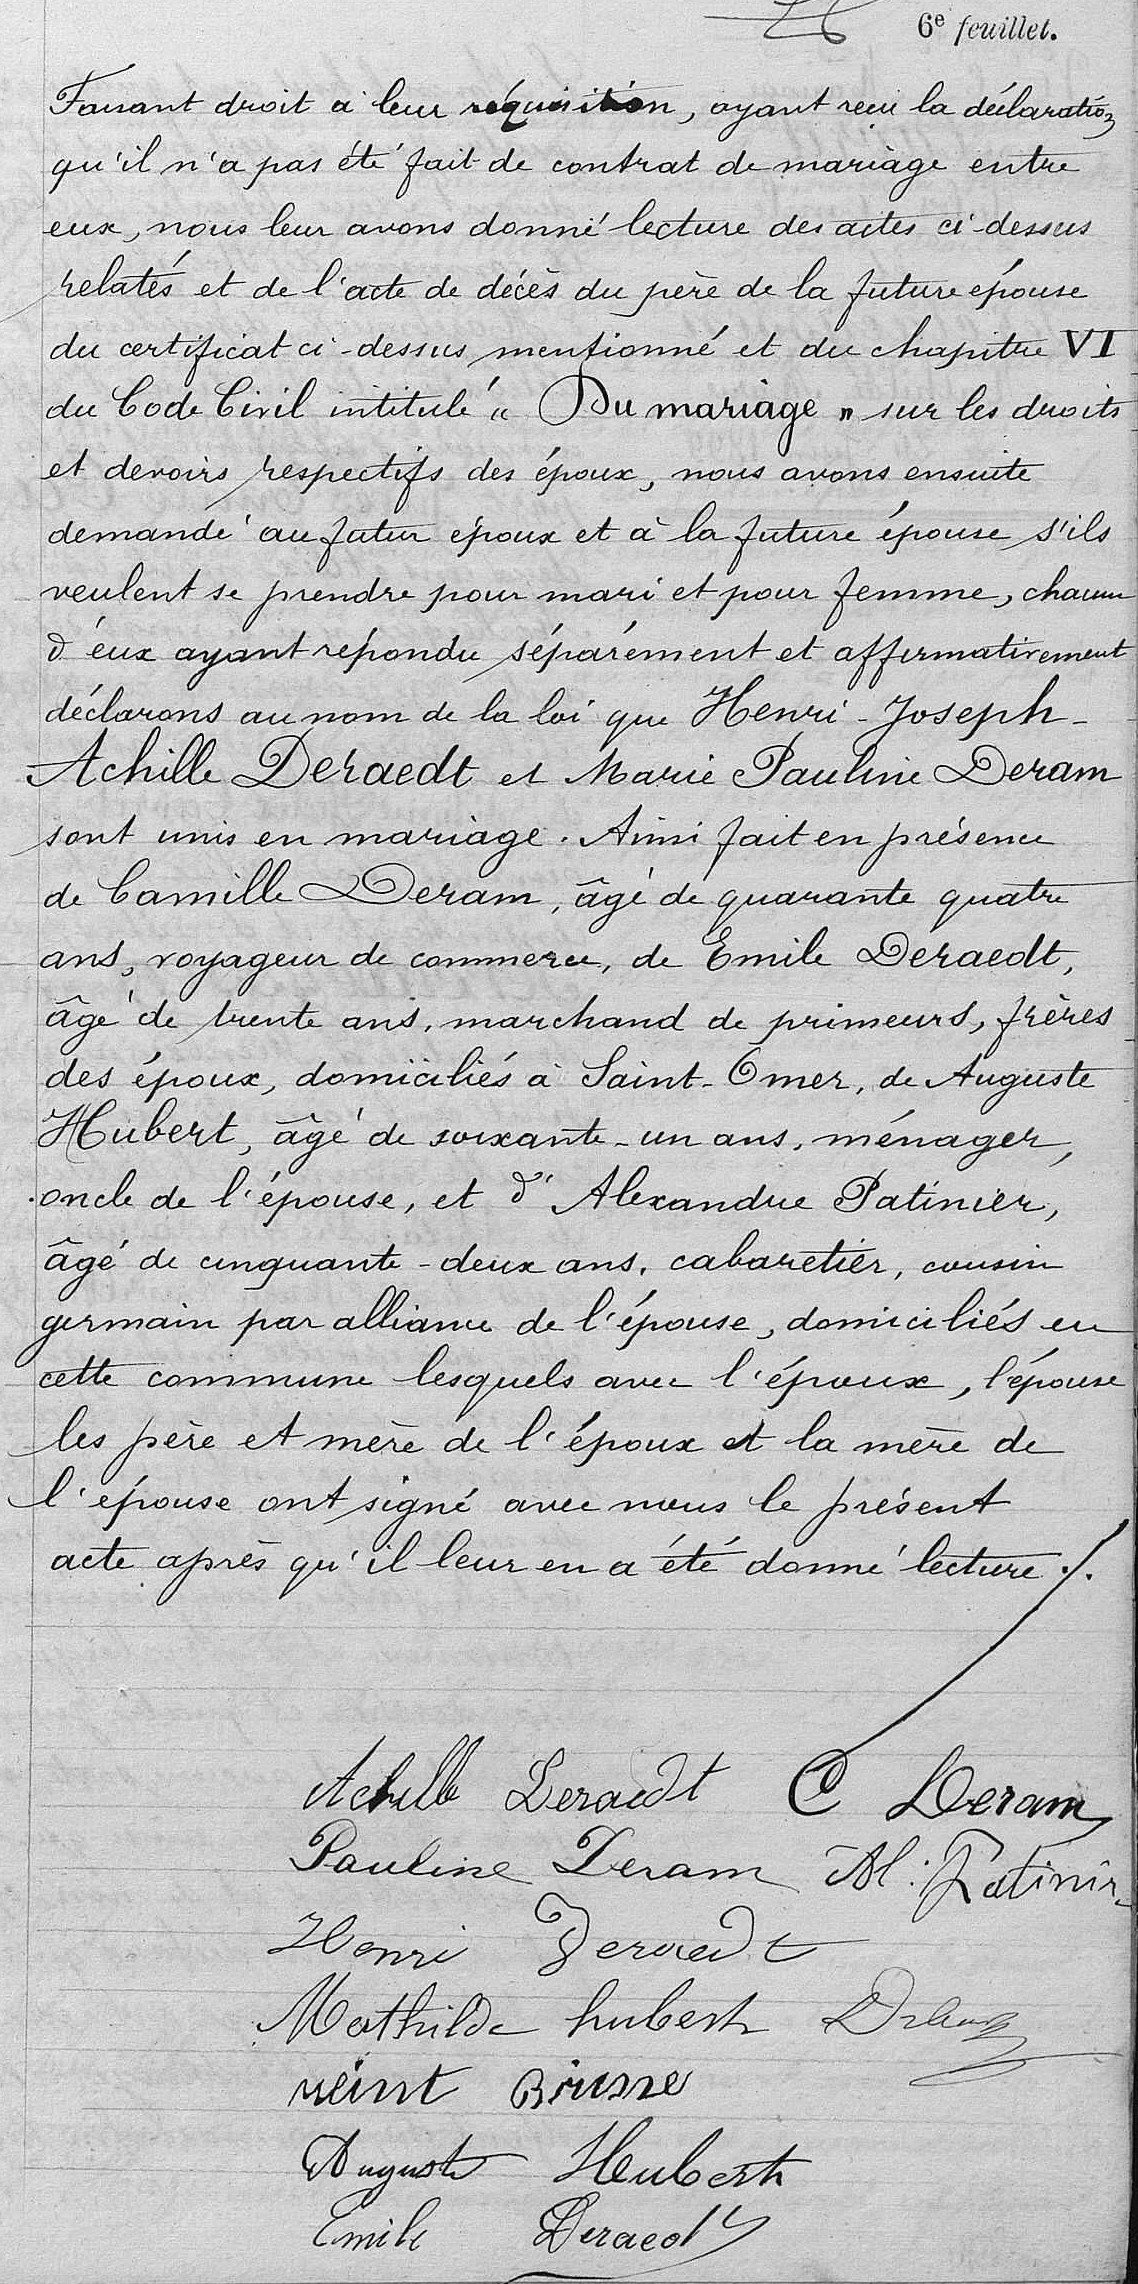 6e feuillet.
Faisant droit à leur réquisition, ayant reçu la déclaration
qu'il n'a pas été fait de contrat de mariage entre
eux, nous leur avons donné lecture des actes ci-dessus
relatés et de l'acte de décès du père de la future épouse
du certificat ci-dessus mentionné et du chapitre VI
du Code Civil intitulé " Du mariage " sur les droits
et devoirs respectifs des époux, nous avons ensuite
demandé au futur époux et à la future épouse s'ils
veulent se prendre pour mari et pour femme, chacun
d'eux ayant répondu séparément et affirmativement
déclarons au nom de la loi que Henri-Joseph-
Achille Deraedt et Marie Pauline Deram
sont unis en mariage. Ainsi fait en présence
de Camille Deram, âgé de quarante quatre
ans, voyageur de commerce, de Emile Deraedt,
âgé de trente ans, marchand de primeurs, frères
des époux, domiciliés à Saint-Omer, de Auguste
Hubert, âgé de soixante-un ans, ménager,
oncle de l'épouse, et d'Alexandre Patinier,
âgé de cinquante-deux ans, cabaretier, cousin
germain par alliance de l'épouse, domiciliés en
cette commune lesquels avec l'époux, l'épouse
les père et mère de l'époux et la mère de
l'épouse ont signé avec nous le présent
acte après qu'il leur en a été donné lecture ./.
Achille Deraedt C Deram
Pauline Deram Al. Patinier
Henri Deraedt
Mathilde hubert
Auguste Hubert
Emile Deraedt